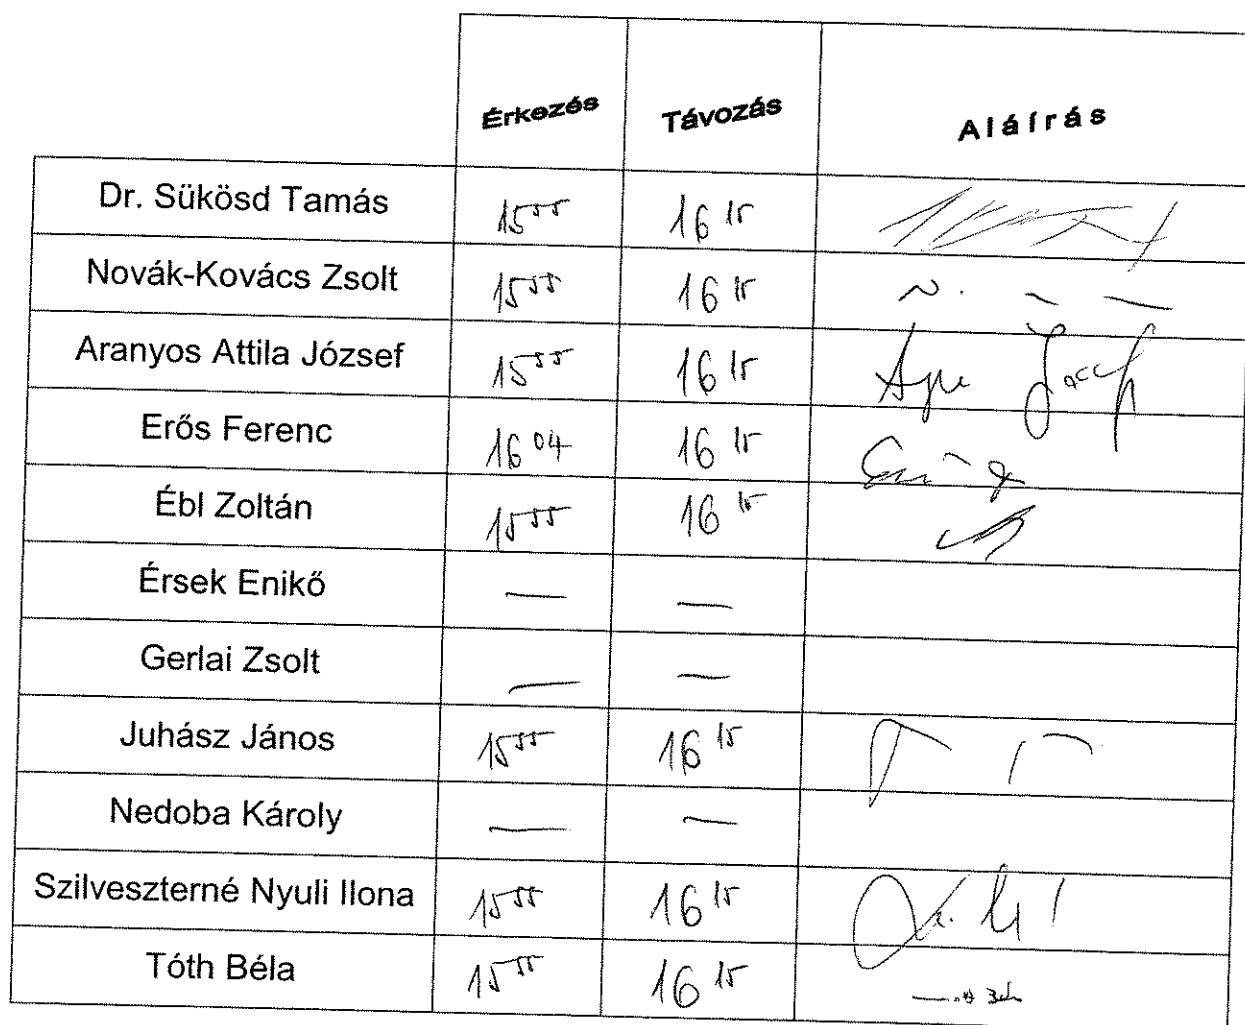 Érkezés Távozás Aláírás
Dr. Sükösd Tamás 15 55 16 15
Novák-Kovács Zsolt 15 55 16 15
Aranyos Attila József 15 55 16 15
Erős Ferenc 16 04 16 15
Ébl Zoltán 15 55 16 15
Érsek Enikő — —
Gerlai Zsolt — —
Juhász János 15 55 16 15
Nedoba Károly — —
Szilveszterné Nyuli Ilona 15 55 16 15
Tóth Béla 15 55 16 15